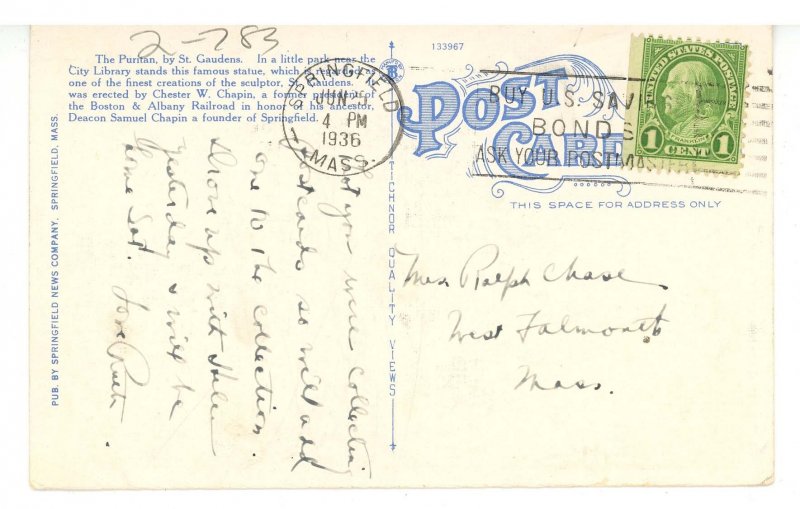 2-783
The Puritan, by St. Gaudens. In a little park near the
City Library stands this famous statue, which is regarded as
one of the finest creations of the sculptor, St. Gaudens. It
was erected by Chester W. Chapin, a former president of
the Boston & Albany Railroad in honor of his ancestor,
Deacon Samuel Chapin a founder of Springfield.
PUB. BY SPRINGFIELD NEWS COMPANY, SPRINGFIELD, MASS.
133967
TICHNOR QUALITY VIEWS
POST CARD
THIS SPACE FOR ADDRESS ONLY
SPRINGFIELD
JUN 25
4 PM
1936
MASS.
BUY U.S. SAVINGS
BONDS
ASK YOUR POSTMASTER
UNITED STATES POSTAGE
FRANKLIN
1 CENT 1
you were collecting
postcards so will add
one to the collection.
Drove up with Helen
yesterday & will be
home Sat. Love Ruth.
Mrs Ralph Chase
West Falmouth
Mass.